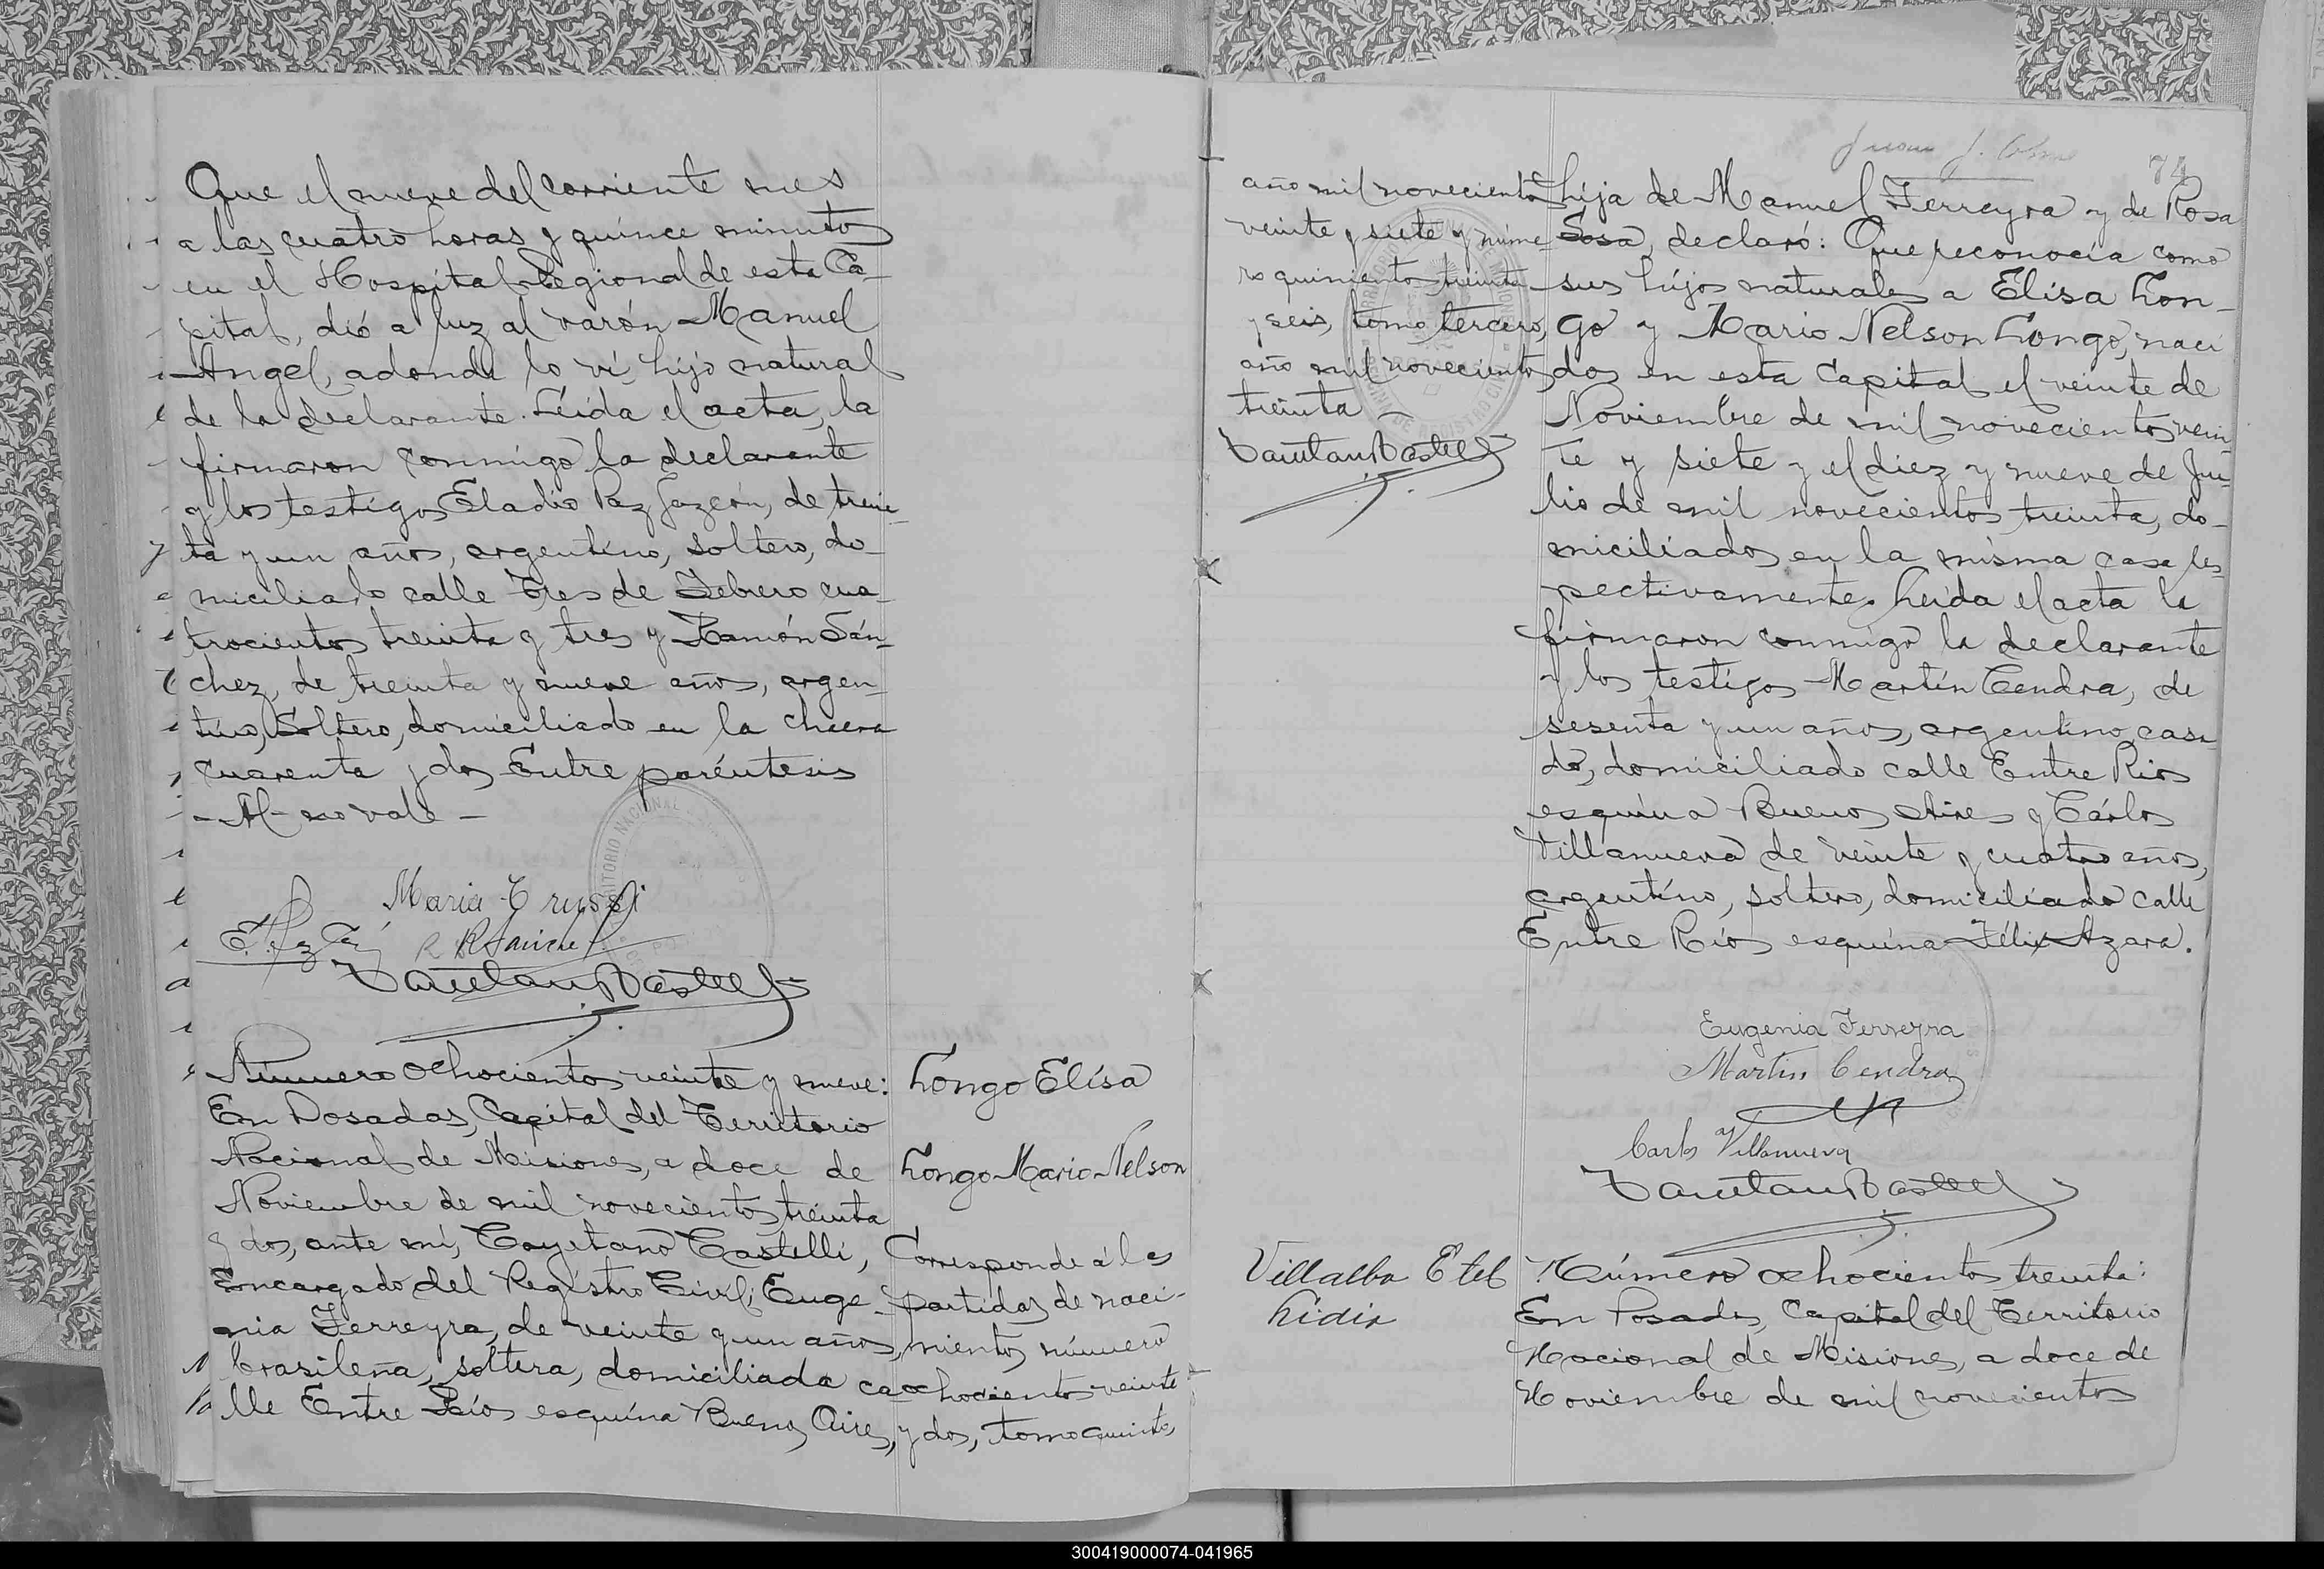 Que el nueve del corriente mes
a las cuatro horas y quince minutos
en el Hospital Regional de esta Ca-
pital, dió a luz al varón Manuel
Angel, adonde lo ví, hijo natural
de la declarante. Leída el acta, la
firmaron conmigo la declarante
y los testigos Eladio Paz, de trein-
ta y un años, argentino, soltero, do-
miciliado calle Tres de Febrero cua-
trocientos treinta y tres y Ramón Sán-
chez, de treinta y nueve años, argen-
tino, soltero, domiciliado en la chacra
cuarenta y dos Entre paréntesis
- Al - no vale -
TERRITORIO NACIONAL
Maria
R RSanche
Cayetano Castelli
Número ochocientos veinte y nueve:
En Posadas, Capital del Territorio
Nacional de Misiones, a doce de
Noviembre de mil novecientos treinta
y dos, ante mí, Cayetano Castelli,
Encargado del Registro Civil; Euge-
nia Ferreyra, de veinte y un años,
brasileña, soltera, domiciliada ca-
lle Entre Ríos esquina Buenos Aires,
Longo Elisa
Longo Mario Nelson
Corresponde á las
partidas de naci-
mientos número
ochocientos veinte
y dos, tomo quinto,
año mil novecientos
veinte y siete y núme
ro quinientos treinta
y seis, tomo tercero,
año mil novecientos
treinta
Cayetano Castelli
74
hija de Manuel Ferreyra y de Rosa
Sosa, declaró: Que reconocía como
sus hijos naturales a Elisa Lon-
go y Mario Nelson Longo, naci
dos en esta Capital el veinte de
Noviembre de mil novecientos vein
te y siete y el diez y nueve de Ju-
lio de mil novecientos treinta, do-
miciliados en la misma casa res-
pectivamente. Leida el acta la
firmaron conmigo la declarante
y los testigos Martín Cendra, de
sesenta y un años, argentino, casa
do, domiciliado calle Entre Rios
esquina Buenos Aires y Cárlos
Villanueva de veinte y cuatro años,
argentino, soltero, domiciliado calle
Entre Ríos esquina Félix Azara.
Eugenia Ferreyra
Martin Cendra
Carlos Villanueva
Cayetano Castelli
Villalba Etel
Lidia
Número ochocientos treinta:
En Posadas, Capital del Territorio
Nacional de Misiones, a doce de
Noviembre de mil novecientos
300419000074-041965